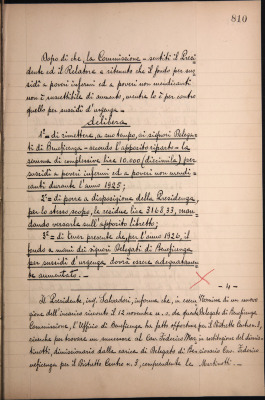 810
Dopo di che, la Commissione - sentiti il Presi-
dente ed il Relatore e ritenuto che il fondo per sus-
sidi a poveri infermi ed a poveri non mendicanti
non è suscettibile di aumento, mentre lo è per contro
quello per sussidi d'urgenza -
delibera
1° = di rimettere, a suo tempo, ai signori Delega-
ti di Beneficenza - secondo l'apposito riparto - la
somma di complessive lire 10.000 (diecimila) per
sussidi a poveri infermi ed a poveri non mendi-
canti durante l'anno 1925;
2° = di porre a disposizione della Presidenza,
per lo stesso scopo, le residue lire 3168,33, man-
dando versarle sull'apposito libretto;
3° = di tener presente che, per l'anno 1926, il
fondo a mani dei signori Delegati di Beneficenza
per sussidi d'urgenza dovrà essere adeguatamen-
te aumentato. -
- 4 -
Il Presidente, ing. Salvadori, informa che, in
gine dell'incarico ricevuto il 12 novembre u.s. da questa
Commissione, l'Ufficio di Beneficenza ha fatto
per trovare un successore al Cav. Federico in sostituzione del
dimissionario dalla carica di Delegato di
neficenza per il Distretto Centro n. 3, comprendente la